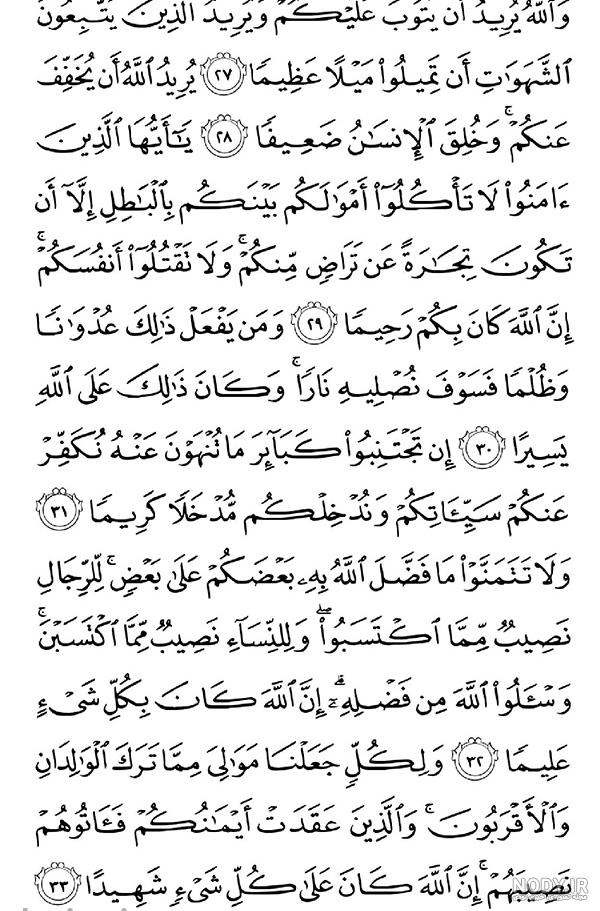 وَٱللَّهُ يُرِيدُ أَن يَتُوبَ عَلَيْكُمْ وَيُرِيدُ ٱلَّذِينَ يَتَّبِعُونَ
ٱلشَّهَوَٰتِ أَن تَمِيلُوا۟ مَيْلًا عَظِيمًا ٢٧ يُرِيدُ ٱللَّهُ أَن يُخَفِّفَ
عَنكُمْ ۚ وَخُلِقَ ٱلْإِنسَـٰنُ ضَعِيفًا ٢٨ يَـٰٓأَيُّهَا ٱلَّذِينَ
ءَامَنُوا۟ لَا تَأْكُلُوٓا۟ أَمْوَٰلَكُم بَيْنَكُم بِٱلْبَـٰطِلِ إِلَّآ أَن
تَكُونَ تِجَـٰرَةً عَن تَرَاضٍ مِّنكُمْ ۚ وَلَا تَقْتُلُوٓا۟ أَنفُسَكُمْ ۚ
إِنَّ ٱللَّهَ كَانَ بِكُمْ رَحِيمًا ٢٩ وَمَن يَفْعَلْ ذَٰلِكَ عُدْوَٰنًا
وَظُلْمًا فَسَوْفَ نُصْلِيهِ نَارًا ۚ وَكَانَ ذَٰلِكَ عَلَى ٱللَّهِ
يَسِيرًا ٣٠ إِن تَجْتَنِبُوا۟ كَبَآئِرَ مَا تُنْهَوْنَ عَنْهُ نُكَفِّرْ
عَنكُمْ سَيِّـَٔاتِكُمْ وَنُدْخِلْكُم مُّدْخَلًا كَرِيمًا ٣١
وَلَا تَتَمَنَّوْا۟ مَا فَضَّلَ ٱللَّهُ بِهِۦ بَعْضَكُمْ عَلَىٰ بَعْضٍ ۚ لِّلرِّجَالِ
نَصِيبٌ مِّمَّا ٱكْتَسَبُوا۟ ۖ وَلِلنِّسَآءِ نَصِيبٌ مِّمَّا ٱكْتَسَبْنَ ۚ
وَسْـَٔلُوا۟ ٱللَّهَ مِن فَضْلِهِۦٓ ۗ إِنَّ ٱللَّهَ كَانَ بِكُلِّ شَىْءٍ
عَلِيمًا ٣٢ وَلِكُلٍّ جَعَلْنَا مَوَٰلِىَ مِمَّا تَرَكَ ٱلْوَٰلِدَانِ
وَٱلْأَقْرَبُونَ ۚ وَٱلَّذِينَ عَقَدَتْ أَيْمَـٰنُكُمْ فَـَٔاتُوهُمْ
نَصِيبَهُمْ ۚ إِنَّ ٱللَّهَ كَانَ عَلَىٰ كُلِّ شَىْءٍ شَهِيدًا ٣٣
NODY.IR